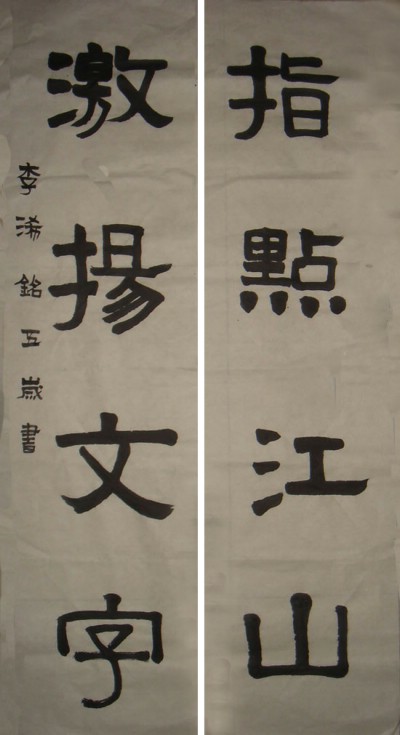 指點江山
激揚文字
李浠銘五歲書